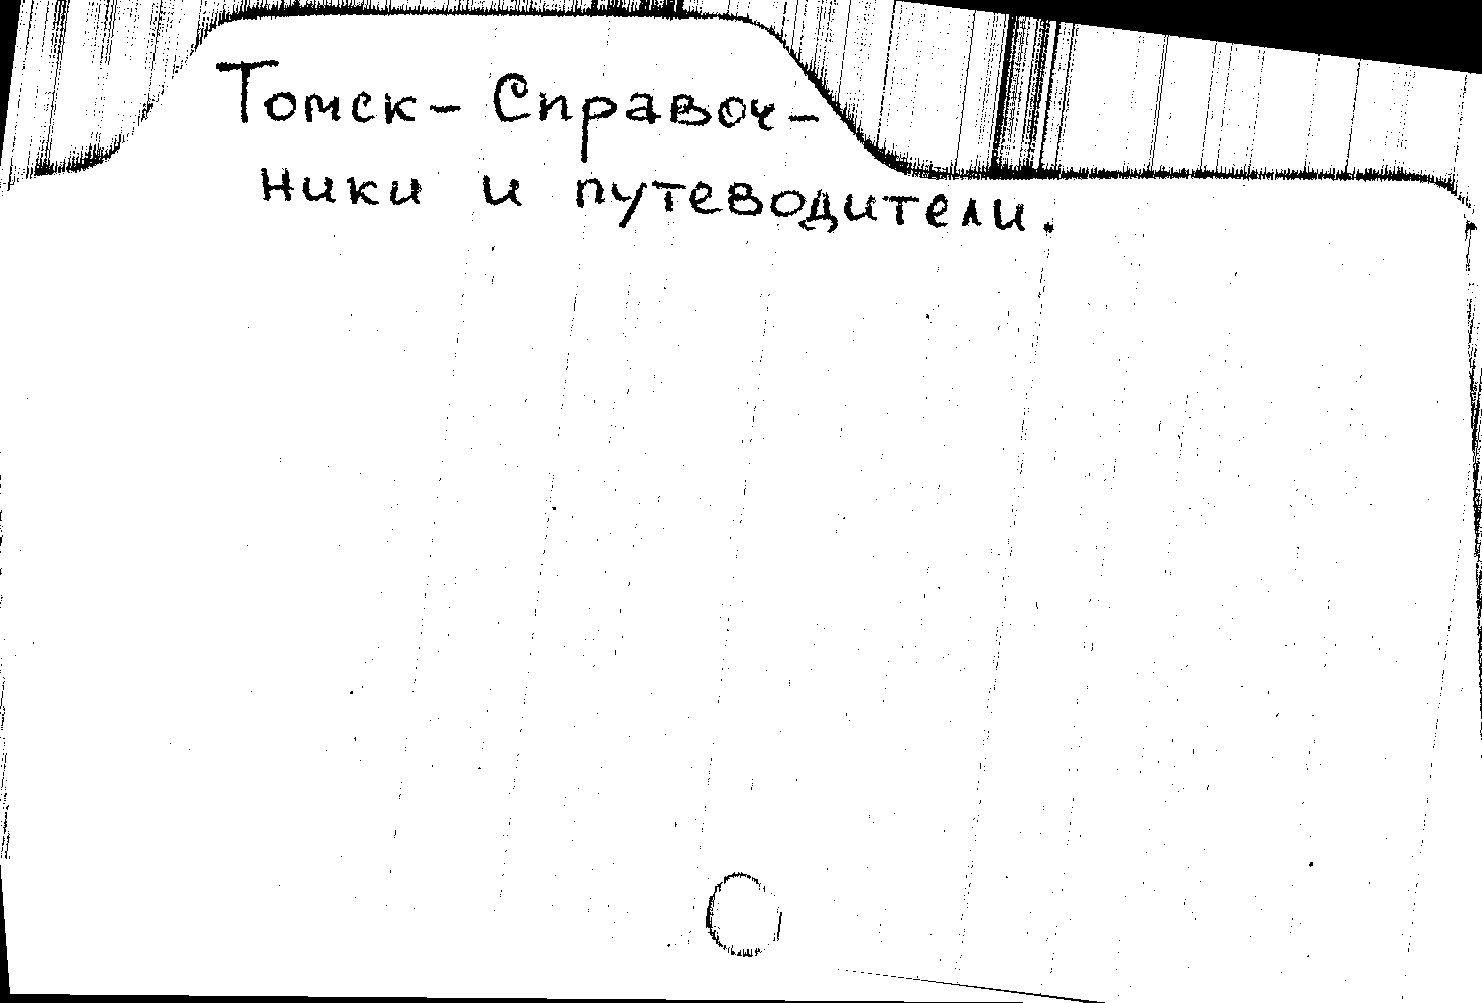 Томск - Справоч-
ники и путеводители.